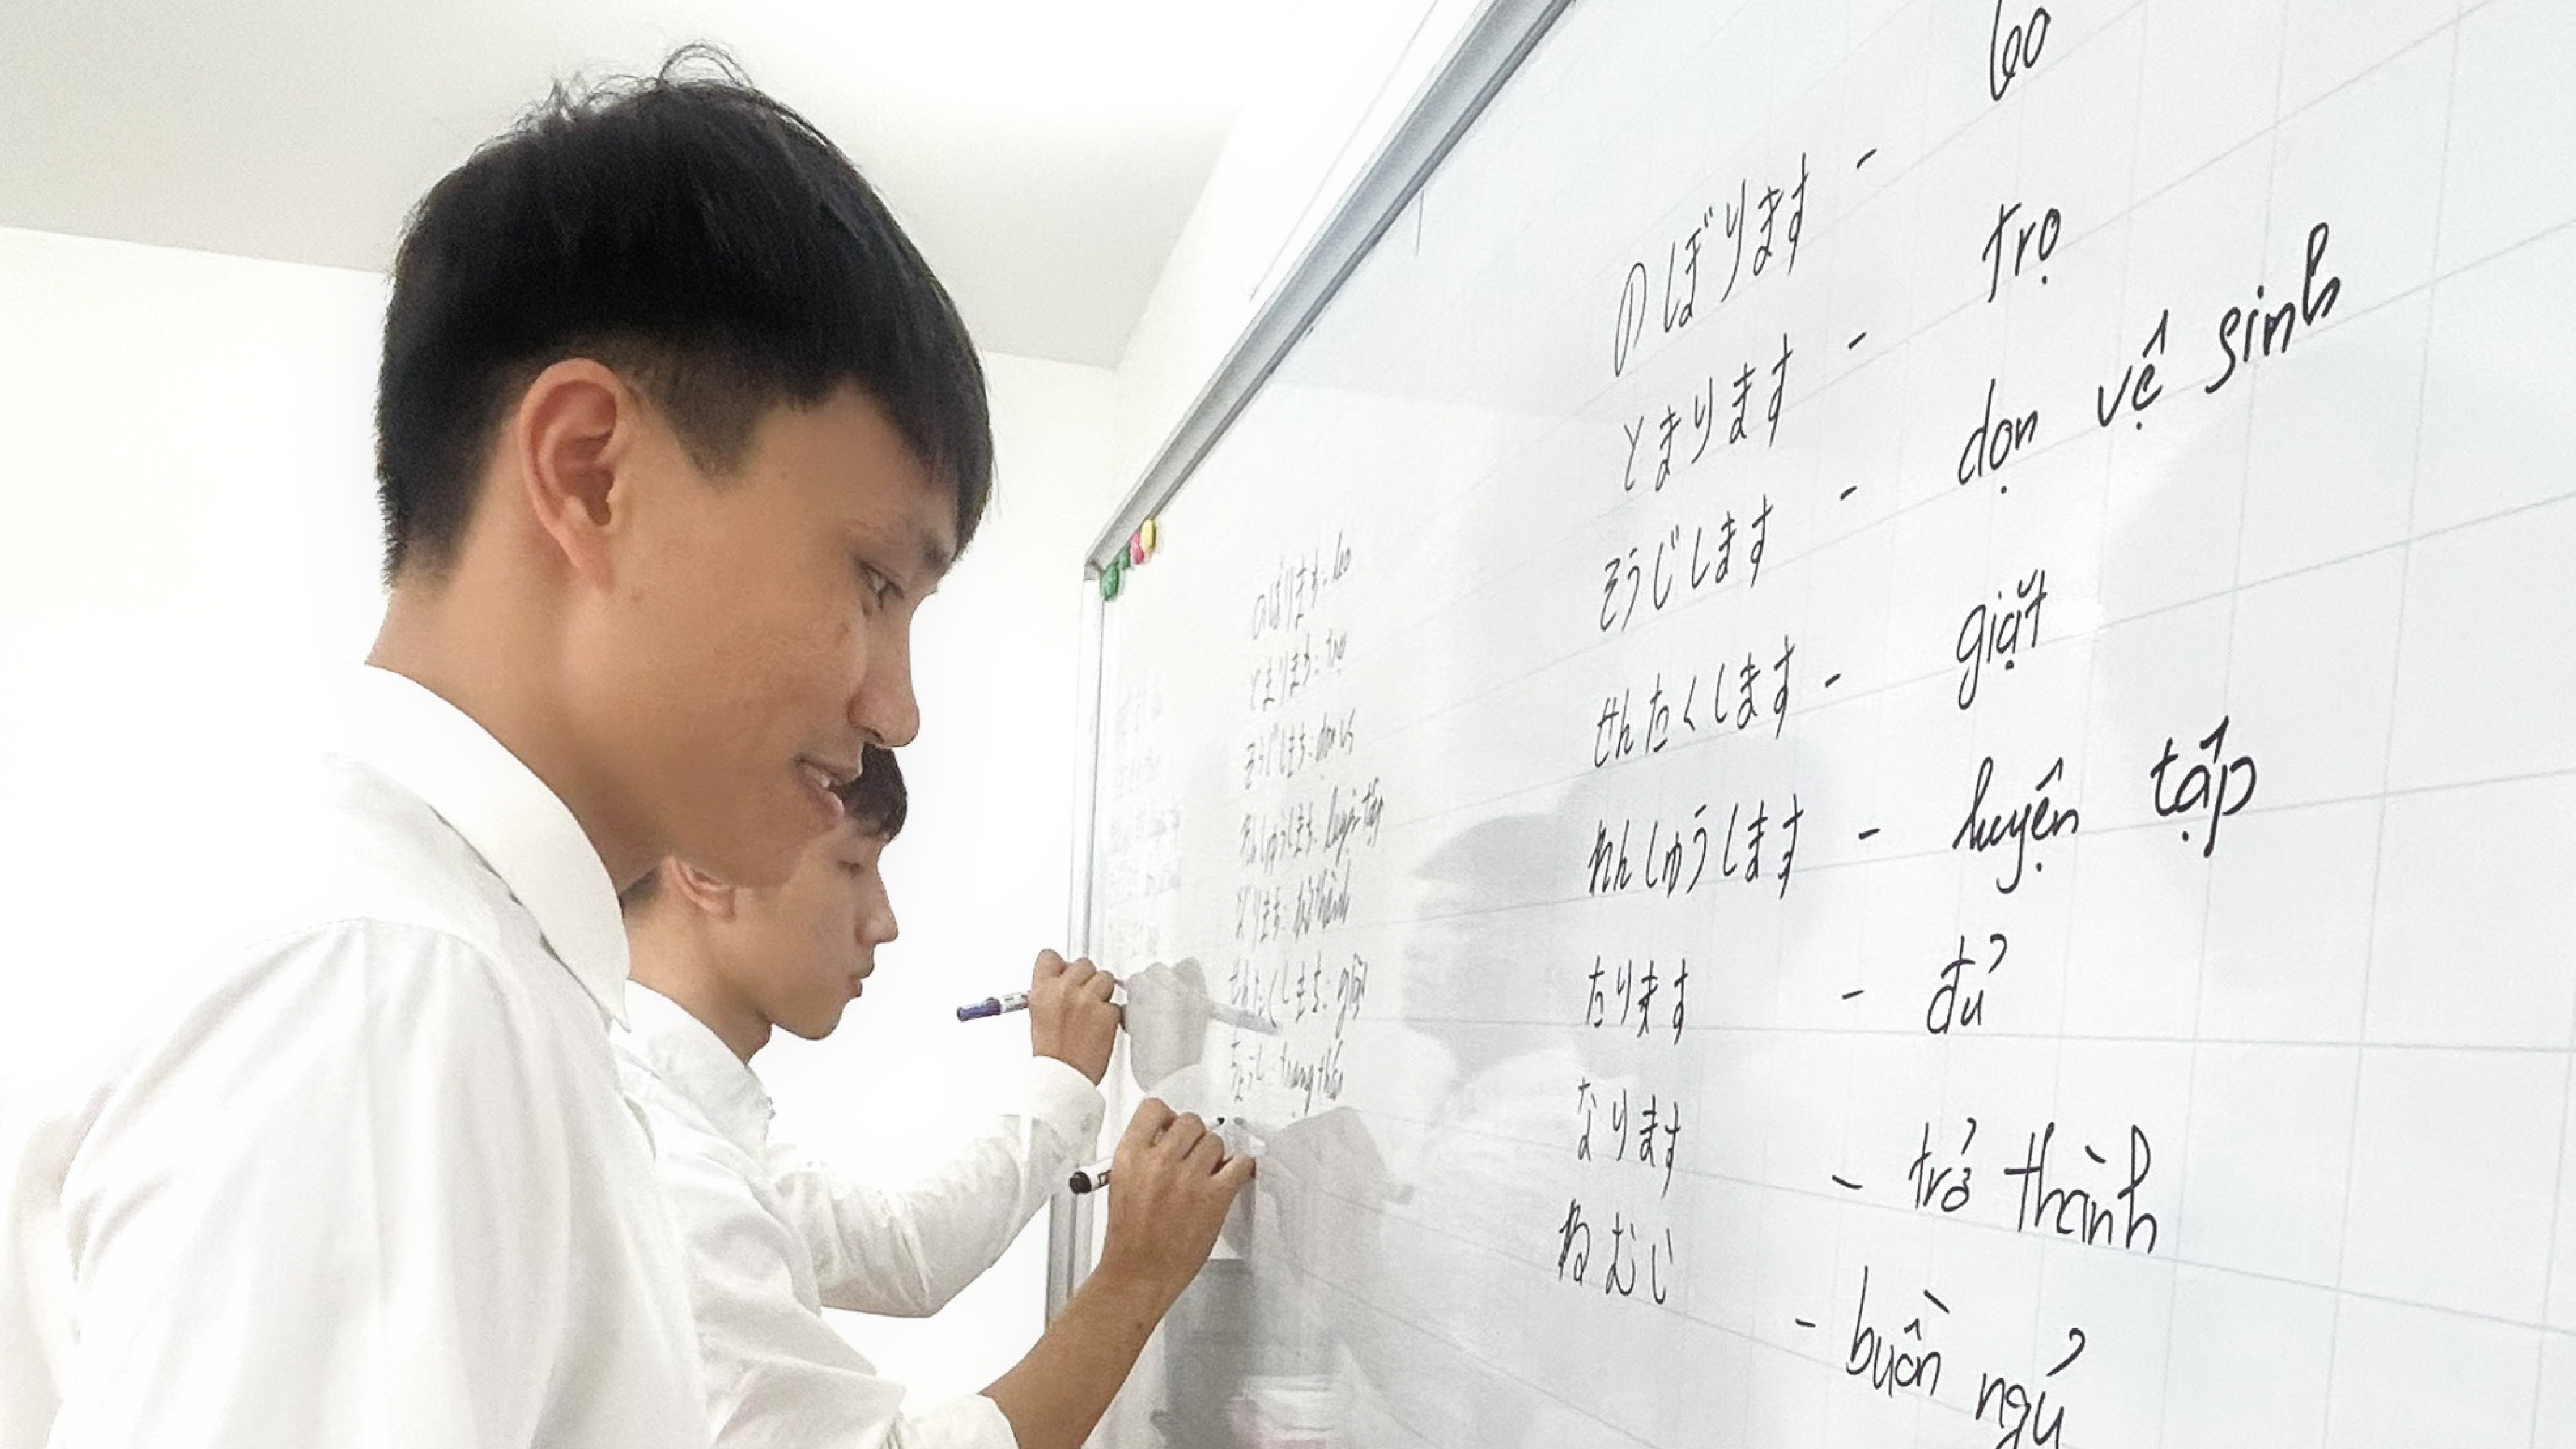 のぼります - leo
とまります - trọ
そうじします - dọn vệ sinh
せんたくします - giặt
れんしゅうします - luyện tập
たります - đủ
なります - trở thành
ねむい - buồn ngủ
のぼります: leo
とまります: trọ
そうじします: dọn vs
れんしゅうします: luyện tập
なります: trở thành
せんたくします: giặt
ちょうし: trạng thái